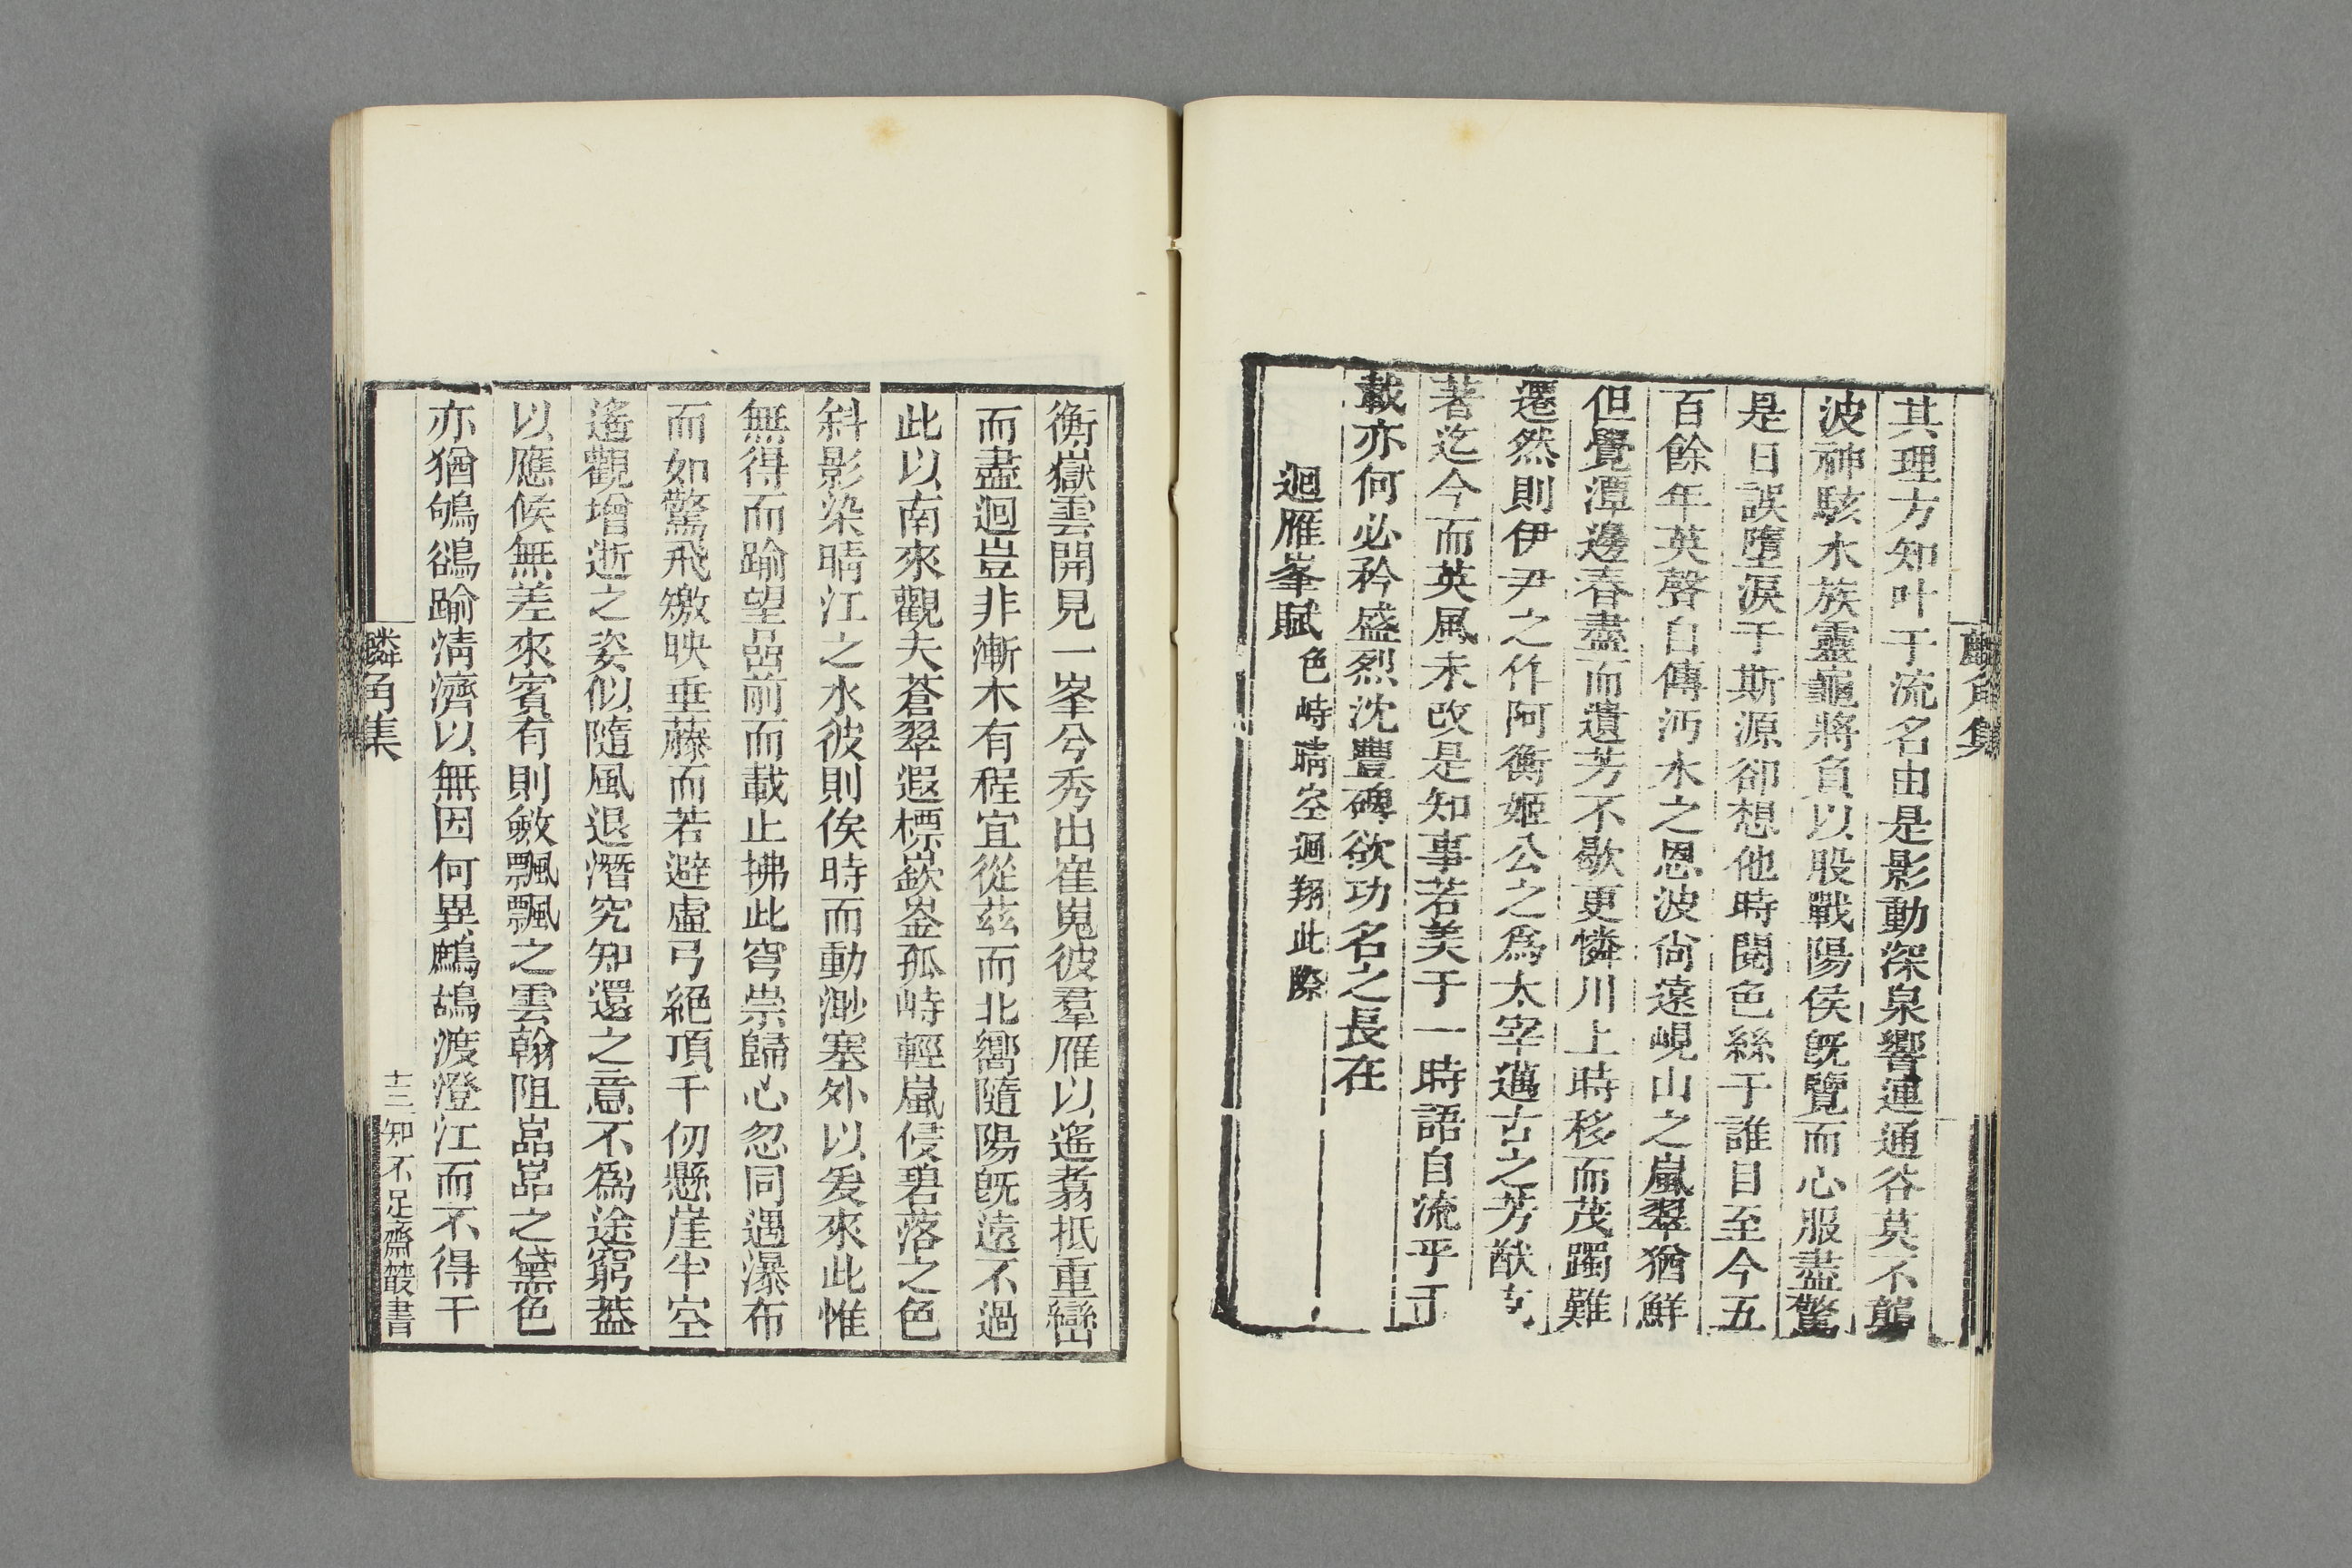 麟角集
其理方知叶于流名由是影動深泉響連通谷莫不龍
波神駭水族靈龜將負以股戰陽侯旣覽而心服盡驚
是日誤墮淚于斯源卻想他時閱色絲于誰目至今五
百餘年英聲自傳沔水之恩波尙遠峴山之嵐翠猶鮮
但覺潭邊春盡而遺芳不歇更憐川上時移而茂躅難
遷然則伊尹之作阿衡姬公之爲太宰邁古之芳猷
著迄今而英風未改是知事若美于一時語自流乎
載亦何必矜盛烈沈豐碑欲功名之長在
迴雁峯賦色峙晴空迴翔此際
衡嶽雲開見一峯兮秀出崔嵬彼羣雁以遙翥抵重巒
而盡迴豈非漸木有程宜從茲而北嚮隨陽旣遠不過
此以南來觀夫蒼翠遐標嶔崟孤峙輕嵐侵碧落之色
斜影染晴江之水彼則俟時而動渺塞外以爰來此惟
無得而踰望嵒前而載止拂此穹崇歸心忽同遇瀑布
而如驚飛繳映垂藤而若避虛弓絕頂千仞懸崖半空
遙觀增逝之姿似隨風退潛究知還之意不爲途窮葢
以應候無差來賓有則斂飄飄之雲翰阻嵓嵓之黛色
亦猶鴝鵒踰淸濟以無因何異鷓鴣渡澄江而不得干
麟角集 十三 知不足齋叢書